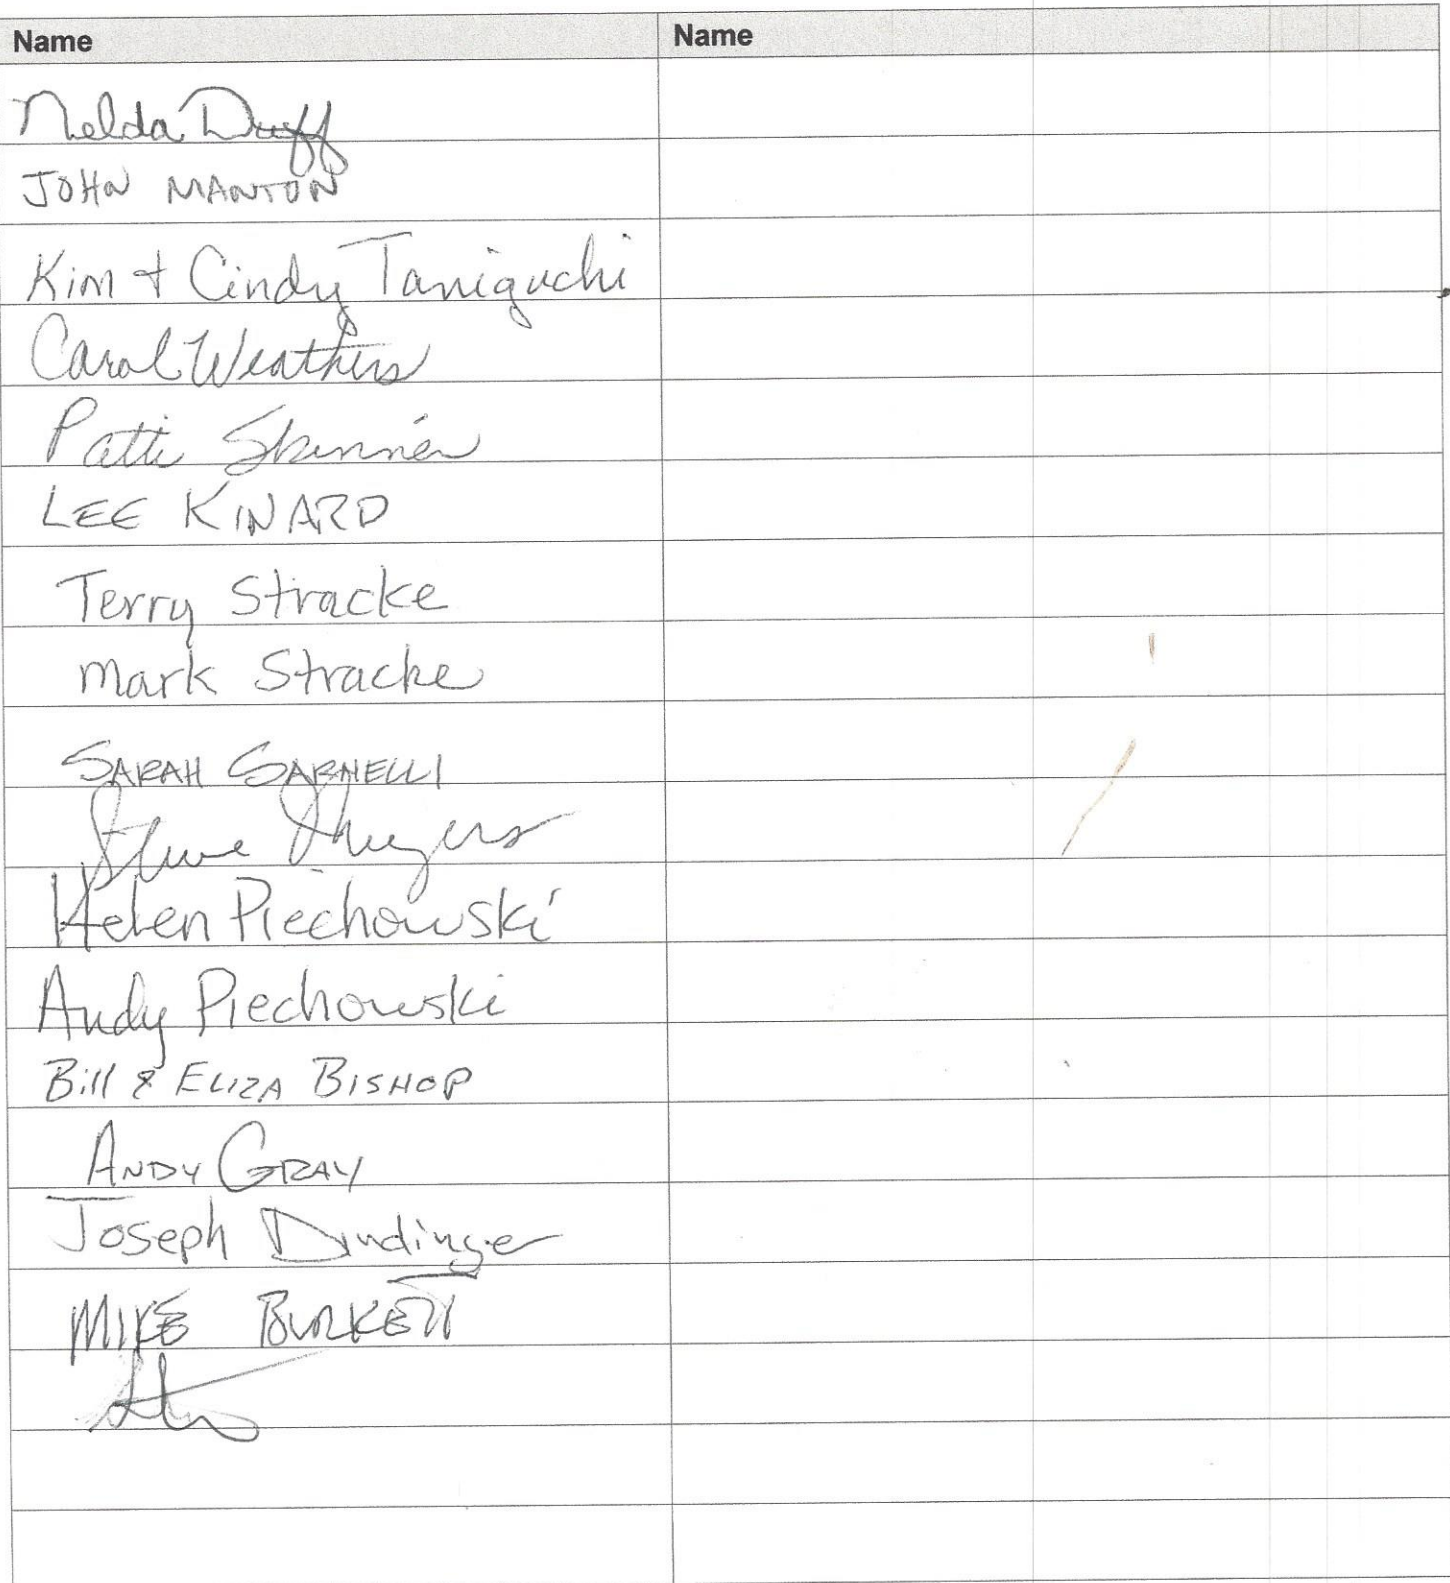 Name Name
Nelda Duff
JOHN MANTON
Kim + Cindy Taniguchi
Carol Weathers
Patti Skinner
LEE KINARD
Terry Stracke
Mark Stracke
SARAH SARNELLI
Steve Meyers
Helen Piechowski
Andy Piechowski
Bill & ELIZA BISHOP
ANDY GRAY
Joseph Dindinger
MIKE BURKETT